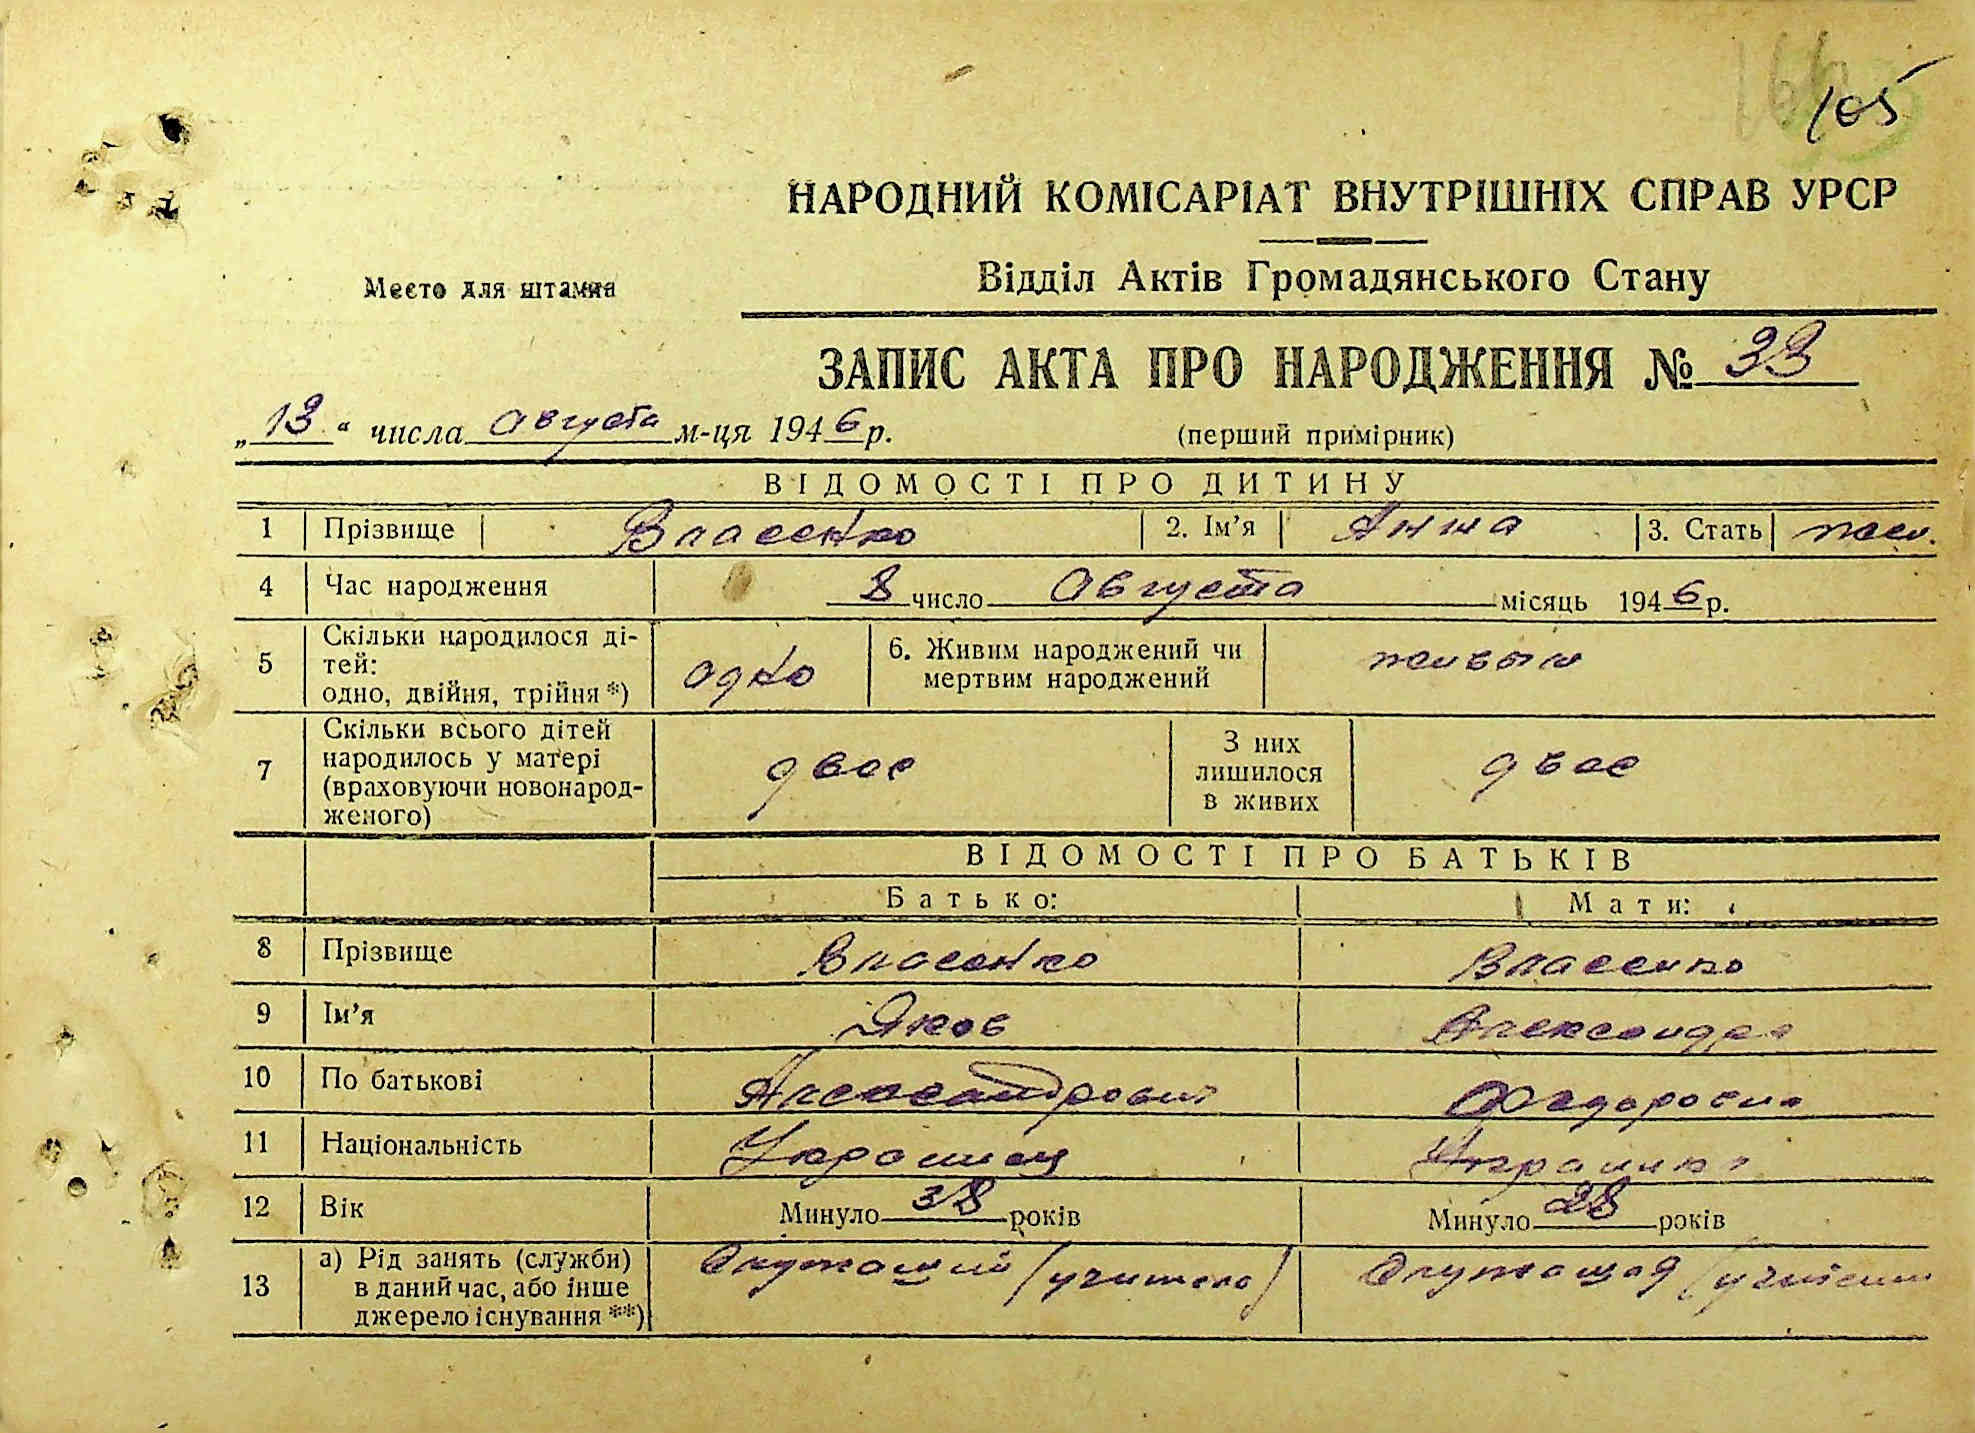 105
НАРОДНИЙ КОМІСАРІАТ ВНУТРІШНІХ СПРАВ УРСР
Место для штампа
Відділ Актів Громадянського Стану
ЗАПИС АКТА ПРО НАРОДЖЕННЯ № 33
„13“ числа Августа м-ця 1946 р.
(перший примірник)
ВІДОМОСТІ ПРО ДИТИНУ
1 Прізвище Власенко 2. Ім’я Анна 3. Стать жен.
4 Час народження 8 число Августа місяць 1946 р.
5 Скільки народилося ді-
тей:
одно, двійня, трійня *) одно
6. Живим народжений чи
мертвим народжений живым
7 Скільки всього дітей
народилось у матері
(враховуючи новонарод-
женого) двое
З них
лишилося
в живих двое
ВІДОМОСТІ ПРО БАТЬКІВ
Батько: Мати:
8 Прізвище Власенко Власенко
9 Ім’я Яков Александра
10 По батькові Александрович Федоровна
11 Національність Украинец Украинка
12 Вік Минуло 38 років Минуло 28 років
13 а) Рід занять (служби)
в даний час, або інше
джерело існування **) Служащий (учитель) Служащая